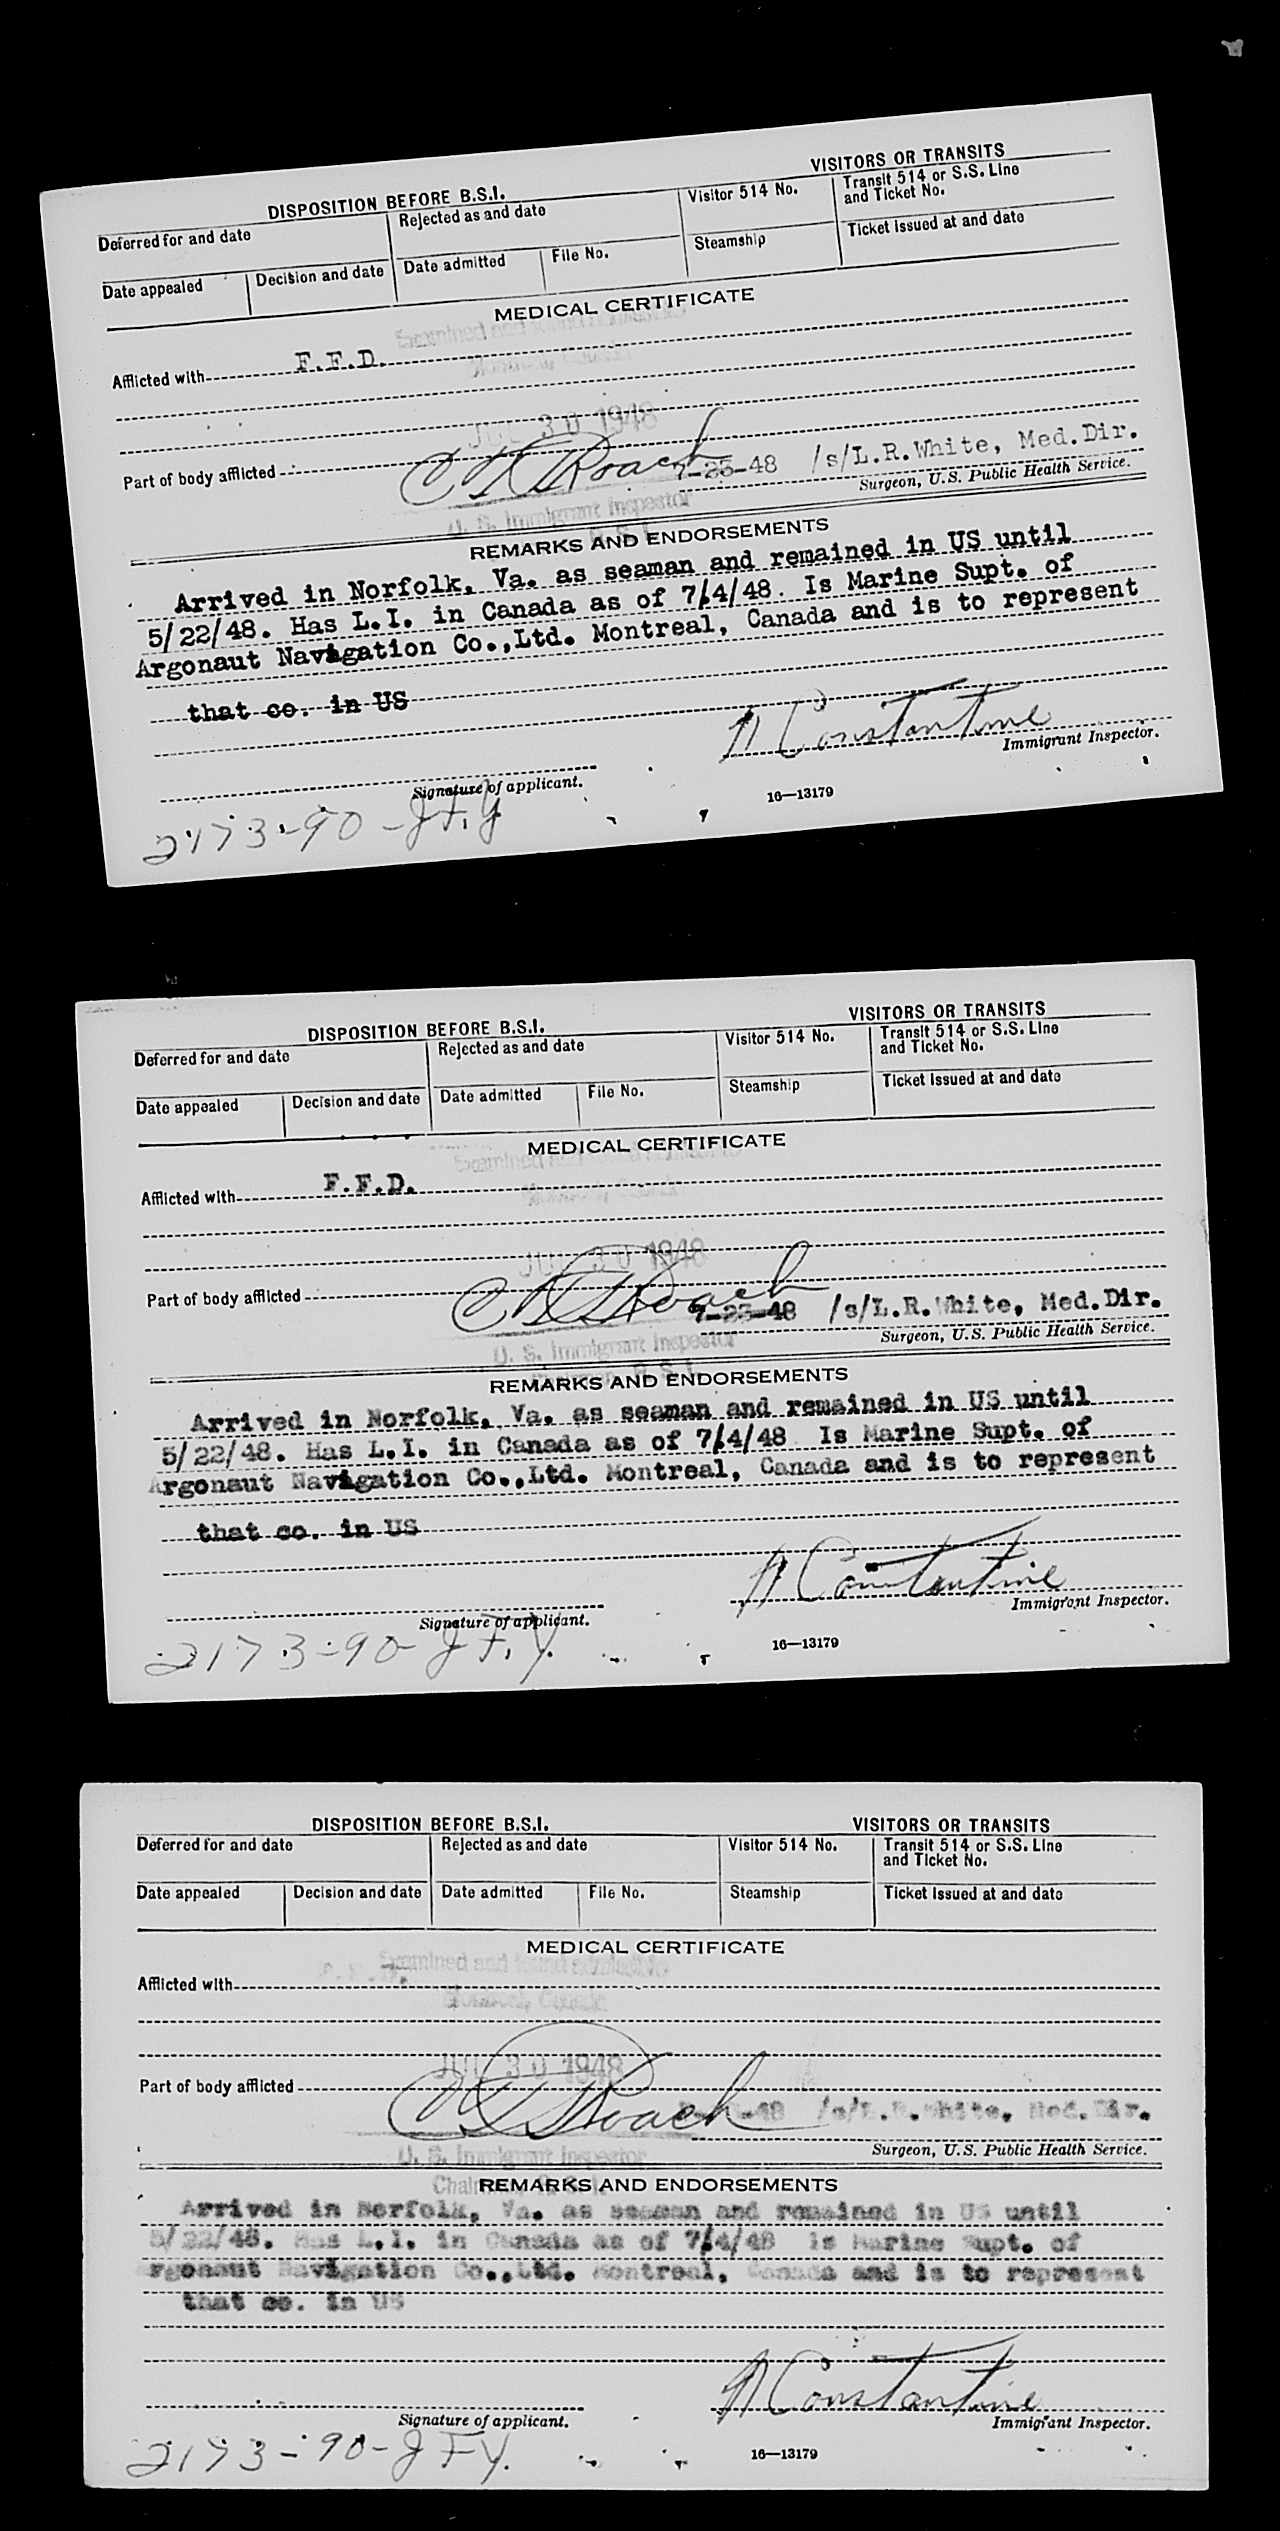 DISPOSITION BEFORE B.S.I.
VISITORS OR TRANSITS
Deferred for and date
Rejected as and date
Visitor 514 No.
Transit 514 or S.S. Line
and Ticket No.
Date appealed
Decision and date
Date admitted
File No.
Steamship
Ticket issued at and date
MEDICAL CERTIFICATE
Examined and found
Afflicted with F.F.D.
JUL 30 1948
Part of body afflicted
Roach
7-23-48 /s/L.R.White, Med.Dir.
Surgeon, U.S. Public Health Service.
U. S. Immigrant Inspector
REMARKS AND ENDORSEMENTS
Arrived in Norfolk, Va. as seaman and remained in US until
5/22/48. Has L.I. in Canada as of 7/4/48. Is Marine Supt. of
Argonaut Navigation Co.,Ltd. Montreal, Canada and is to represent
that co. in US
N Constantine
Immigrant Inspector.
Signature of applicant.
16—13179
2173-90-JFY
DISPOSITION BEFORE B.S.I.
VISITORS OR TRANSITS
Deferred for and date
Rejected as and date
Visitor 514 No.
Transit 514 or S.S. Line
and Ticket No.
Date appealed
Decision and date
Date admitted
File No.
Steamship
Ticket issued at and date
MEDICAL CERTIFICATE
Examined
Afflicted with F.F.D.
JUL 30 1948
Part of body afflicted
Roach
7-23-48 /s/L.R.White, Med.Dir.
Surgeon, U.S. Public Health Service.
U. S. Immigrant Inspector
Chairman, B.S.I.
REMARKS AND ENDORSEMENTS
Arrived in Norfolk, Va. as seaman and remained in US until
5/22/48. Has L.I. in Canada as of 7/4/48 Is Marine Supt. of
Argonaut Navigation Co.,Ltd. Montreal, Canada and is to represent
that co. in US
N Constantine
Immigrant Inspector.
Signature of applicant.
16—13179
2173-90-JFY.
DISPOSITION BEFORE B.S.I.
VISITORS OR TRANSITS
Deferred for and date
Rejected as and date
Visitor 514 No.
Transit 514 or S.S. Line
and Ticket No.
Date appealed
Decision and date
Date admitted
File No.
Steamship
Ticket issued at and date
MEDICAL CERTIFICATE
Examined and found admissible
Montreal, Canada
Afflicted with
JUL 30 1948
Part of body afflicted
Roach
48 /s/L.R.White, Med.Dir.
Surgeon, U.S. Public Health Service.
U. S. Immigrant Inspector
REMARKS AND ENDORSEMENTS
Arrived in Norfolk, Va. as seaman and remained in US until
5/22/48. Has L.I. in Canada as of 7/4/48 Is Marine Supt. of
Argonaut Navigation Co.,Ltd. Montreal, Canada and is to represent
that co. in US
N Constantine
Immigrant Inspector.
Signature of applicant.
16—13179
2173-90-JFY.